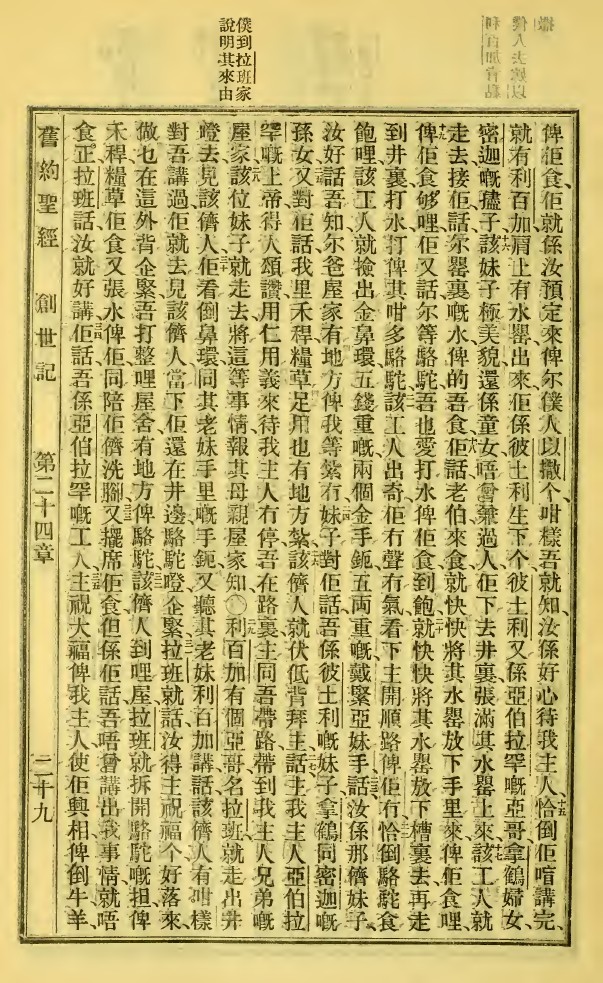 僕到拉班家
說明其來由
俾佢食佢就係汝預定來俾尔僕人以撒个咁樣吾就知汝係好心待我主人十五恰倒佢喧講完
就有利百加肩上有水罌出來佢係彼土利生下个彼土利又係亞伯拉罕嘅亞哥拿鶴婦女
密迦嘅孻子十六該妹子極美貌還係童女唔曾兼過人佢下去井裏張滿其水罌上來十七該工人就
走去接佢話尔罌裏嘅水俾的吾食十八佢話老伯來食就快快將其水罌放下手里來俾佢食哩
十九俾佢食够哩佢又話尔等駱駝吾也愛打水俾佢食到飽二十就快快將其水罌放下槽裏去再走
到井裏打水打俾其咁多駱駝二一該工人出奇佢冇聲冇氣看下主開順路俾佢冇二二恰倒駱駝食
飽哩該工人就撿出金鼻環五錢重嘅兩個金手鈪五両重嘅戴緊亞妹手二三話汝係那儕妹子
汝好話吾知尔爸屋家有地方俾我等紮冇二四妹子對佢話吾係彼土利嘅妹子拿鶴同密迦嘅
孫女二五又對佢話我里禾稈糧草足用也有地方紮二六該儕人就伏低背拜主二七話主我主人亞伯拉
罕嘅上帝得人頌讚用仁用義來待我主人冇停吾在路裏主同吾帶路帶到我主人兄弟嘅
屋家二八該位妹子就走去將這等事情報其母親屋家知○二九利百加有個亞哥名拉班就走出井
墱去兒該儕人三十佢看倒鼻環同其老妹手里嘅手鈪又聽其老妹利百加講話該儕人有咁樣
對吾講過佢就去兒該儕人當下佢還在井邊駱駝墱企緊三一拉班就話汝得主祝福个好落來
做乜在這外背企緊吾打整哩屋舍有地方俾駱駝三二該儕人到哩屋拉班就拆開駱駝嘅担俾
禾稈糧草佢食又張水俾佢同陪佢儕洗腳三三又擺席佢食但係佢話吾唔曾講出我事情就唔
食正拉班話汝就好講三四佢話吾係亞伯拉罕嘅工人三五主祝大福俾我主人使佢興相俾倒牛羊
舊約聖經 創世記 第二十四章 二十九